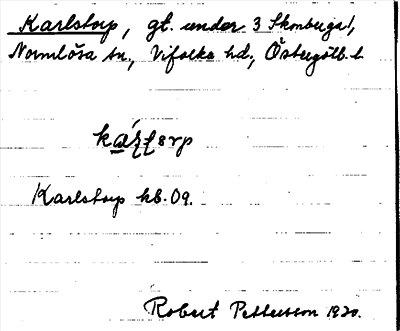 Karlstorp, gt. under 3 Skonbuga!,
Normlösa sn., Vifolka hd., Östergötl. l.
Karlstorp kb. 09.
Robert Pettersson 1920.